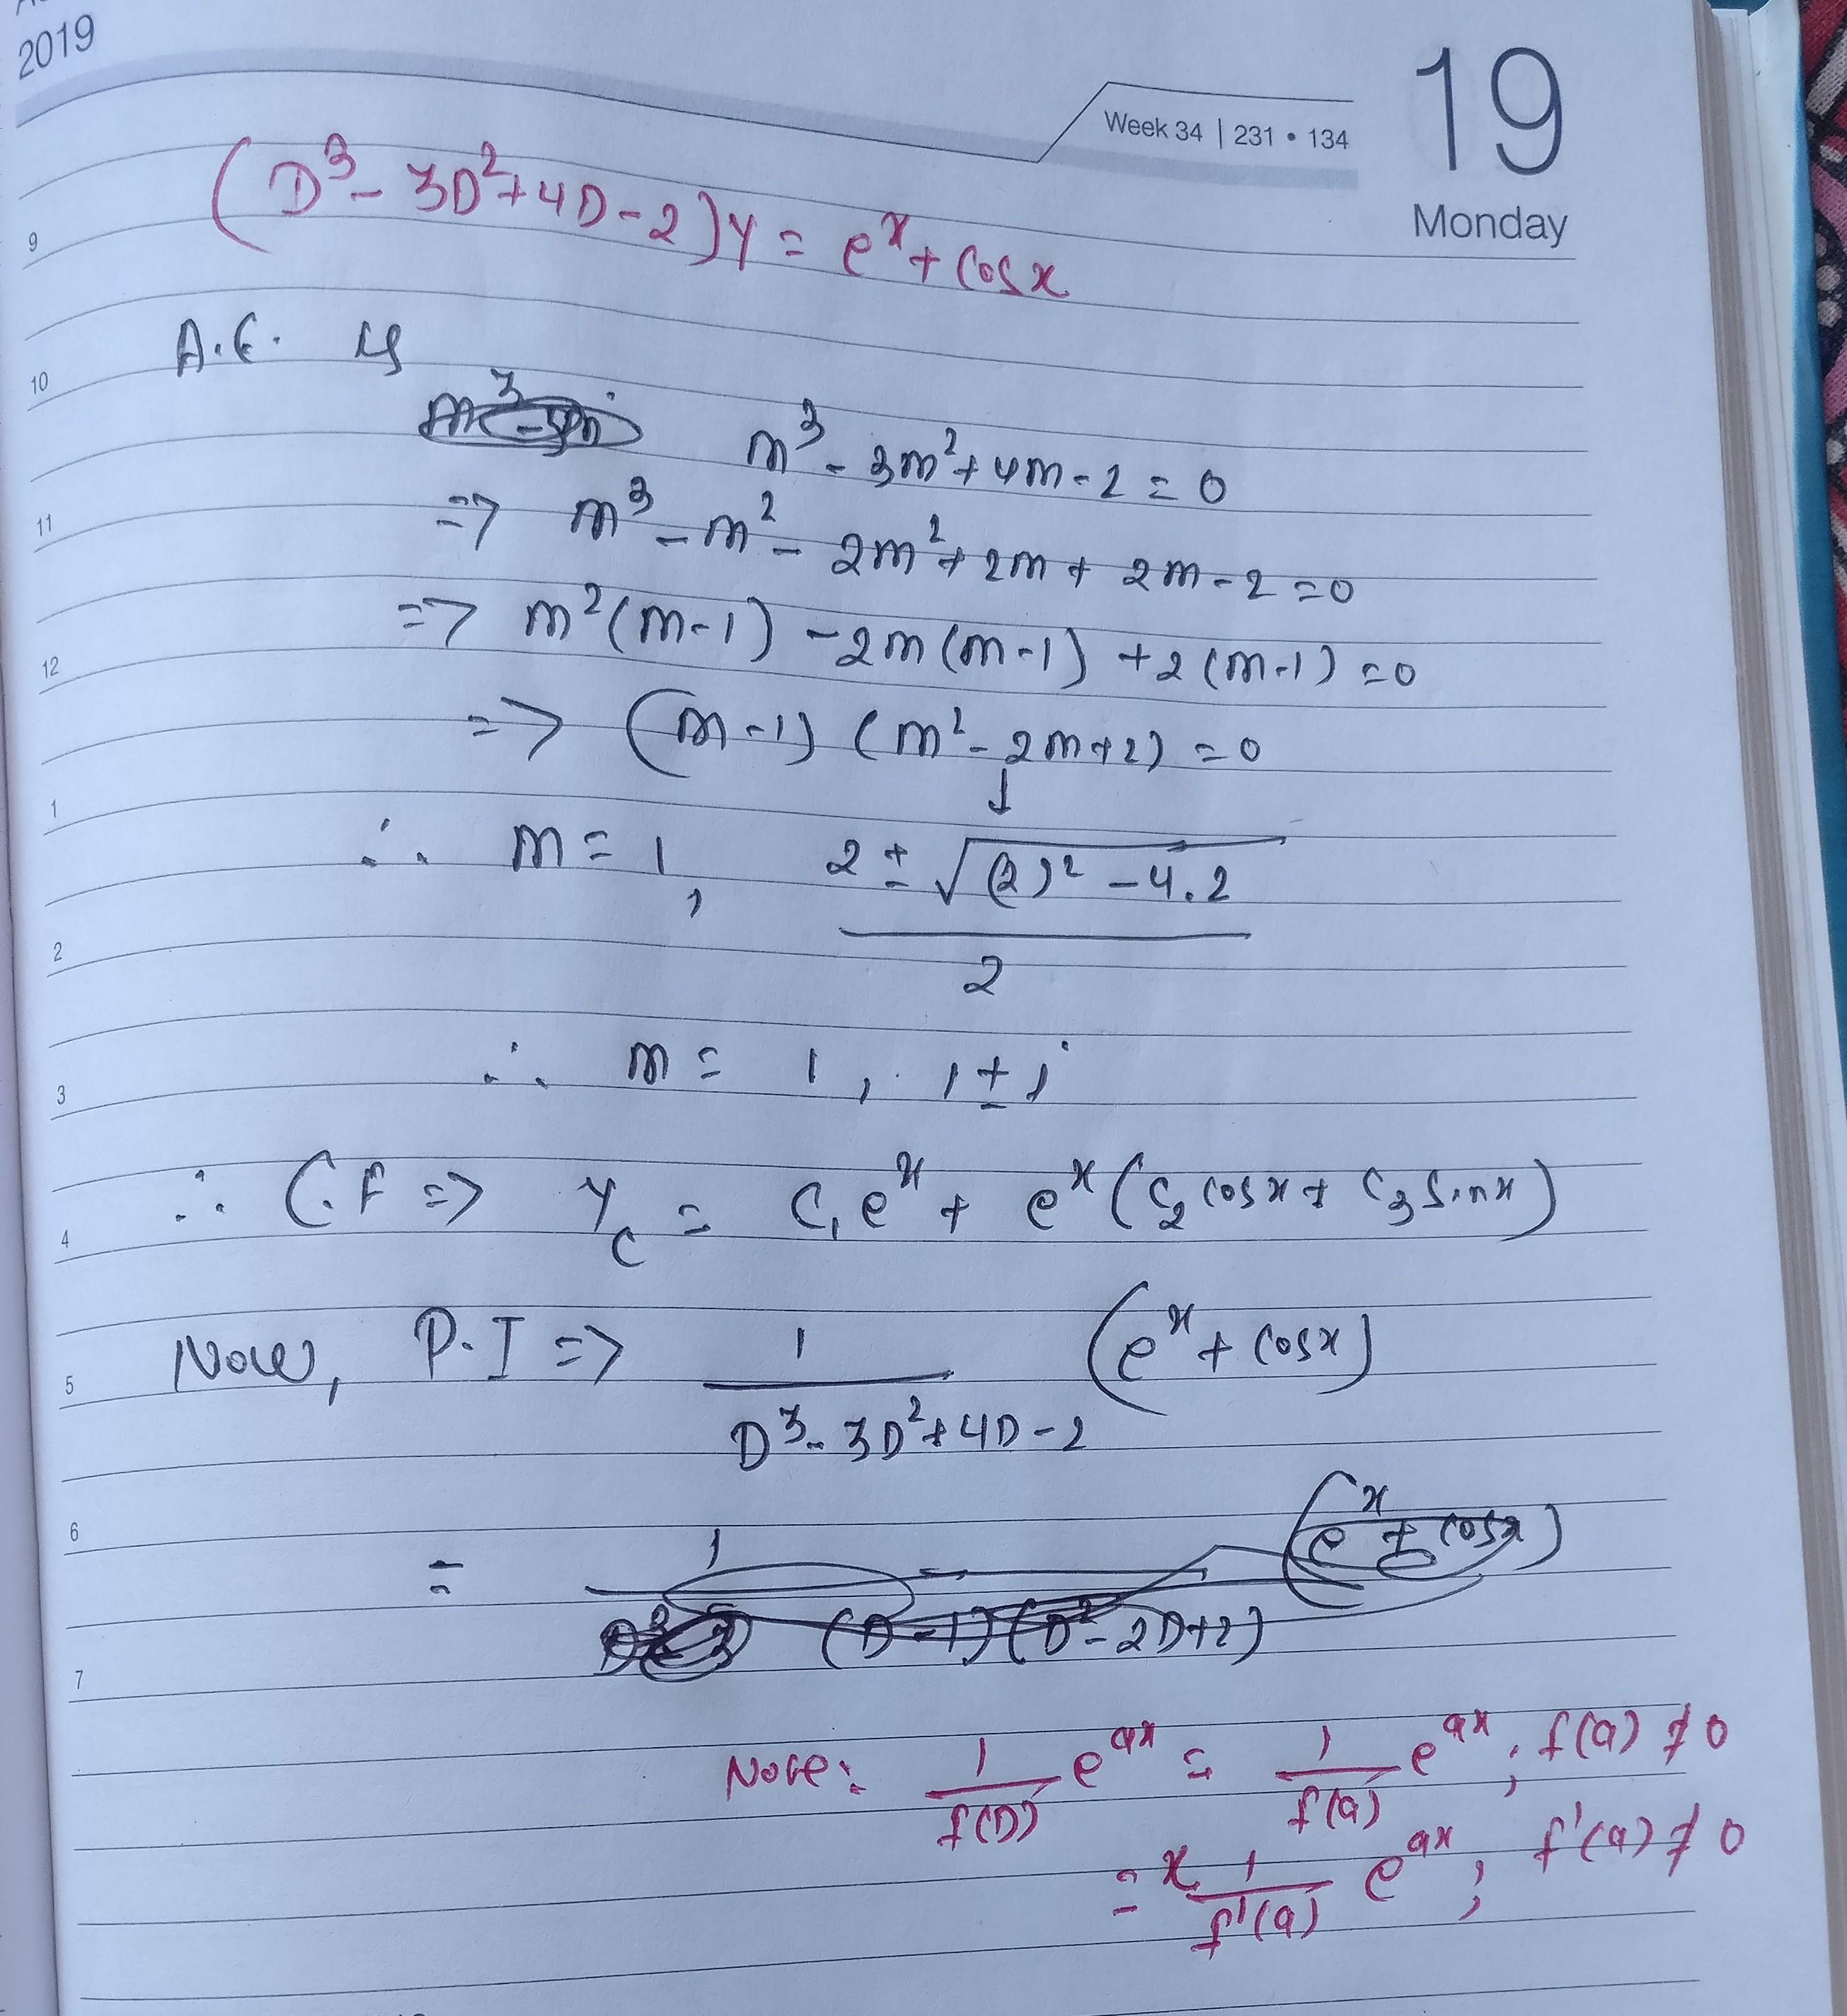 2019
Week 34 | 231 • 134
19
Monday
(D³ - 3D² + 4D - 2)y = eˣ + cosx
9
A.E. is
10
m³ - 3m² + 4m - 2 = 0
11
=> m³ - m² - 2m² + 2m + 2m - 2 = 0
=> m²(m-1) - 2m(m-1) + 2(m-1) = 0
12
=> (m-1) (m² - 2m + 2) = 0
↓
1
∴ m = 1, (2 ± √((2)² - 4.2))/2
2
∴ m = 1, 1 ± i
3
∴ C.F => y_c = C₁eˣ + eˣ(C₂ cosx + C₃ sinx)
4
Now, P.I => 1/(D³ - 3D² + 4D - 2) (eˣ + cosx)
5
6
= 1/((D-1)(D² - 2D + 2)) (eˣ + cosx)
7
Note: 1/f(D) eᵃˣ = 1/f(a) eᵃˣ; f(a) ≠ 0
= x 1/f'(a) eᵃˣ; f'(a) ≠ 0